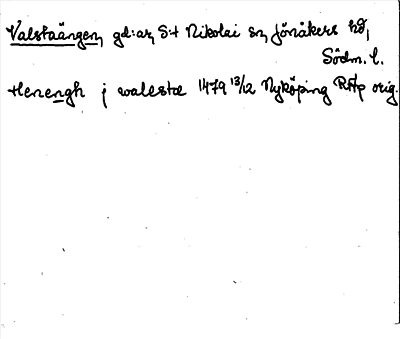 Valstaängen, gd:ar, S:t Nikolai sn, Jönåkers hd,
Södm. l.
Henengh j walesta 1479 13/12 Nyköping RAp orig.